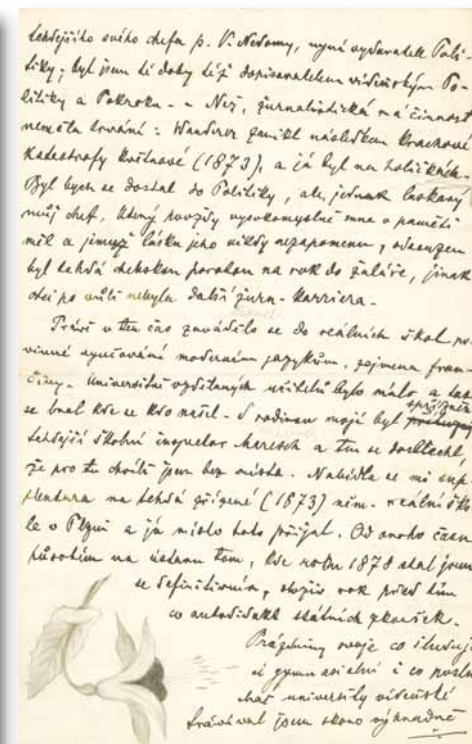 tehdejšího svého chefa p. V. Nedomy, nyní vydavatele Poli-
tiky; byl jsem té doby též dopisovatelem vídeňským Po-
litiky a Pokroku. - Než, žurnalistická má činnost
neměla trvání: Wanderer zanikl následkem krachové
katastrofy květnové (1873), a já byl na holičkách.
Byl bych se dostal do Politiky, ale, jednak laskavý
můj chef, který povždy vysokomyslně mne v paměti
měl a jemuž lásku jeho nikdy nezapomenu, odsouzen
byl tehdá chebskou porotou na rok do žaláře, jinak
otci po vůli nebyla další žurn. karriera.
Právě v ten čas zavádělo se do reálních škol po-
vinné vyučování moderním jazykům, zejmena fran-
činy. Universitně vzdělaných učitelů bylo málo, a tak
se bral kde se kdo našel. S rodinou mojí byl spřízněn
tehdejší školní inspector Maresch a ten se doslechl,
že pro tu chvíli jsem bez místa. Nabídla se mi sup-
plentura na tehdá zřízené (1873) něm. reální ško-
le v Plzni a já místo toto přijal. Od onoho času
působím na ústavu tom, kde roku 1878 stal jsem
se definitivním, složiv rok před tím
co autodidakt státních zkoušek.
Prázdniny svoje co studující
ať gymnasielní i co poslu-
chač university vídeňské
trávíval jsem skoro výhradně